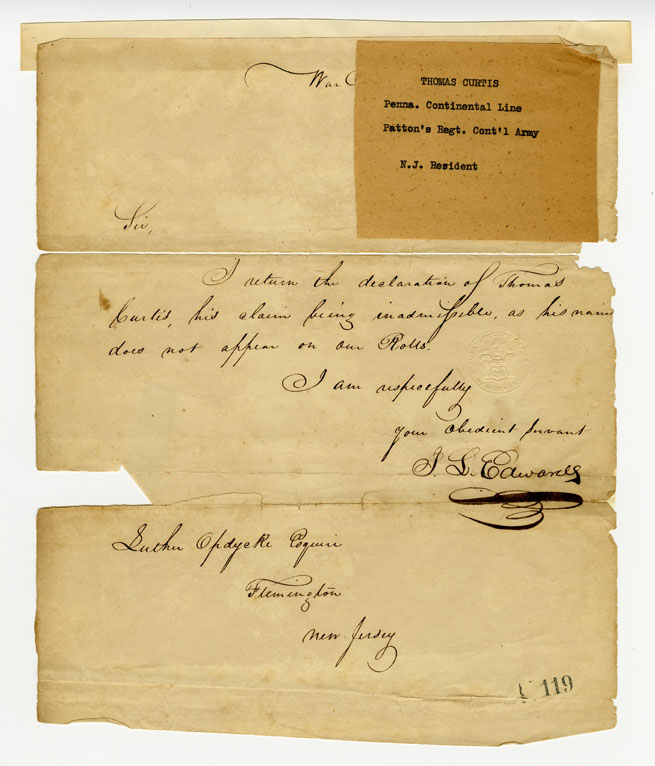 War
THOMAS CURTIS
Penna. Continental Line
Patton's Regt. Cont'l Army
N.J. Resident
Sir,
I return the declaration of Thomas
Curtis, his claim being inadmissible, as his name
does not appear on our Rolls.
I am respecfully
your obedient servant
J. L. Edwards
Luther Opdycke Esquire
Flemington
New Jersey
119